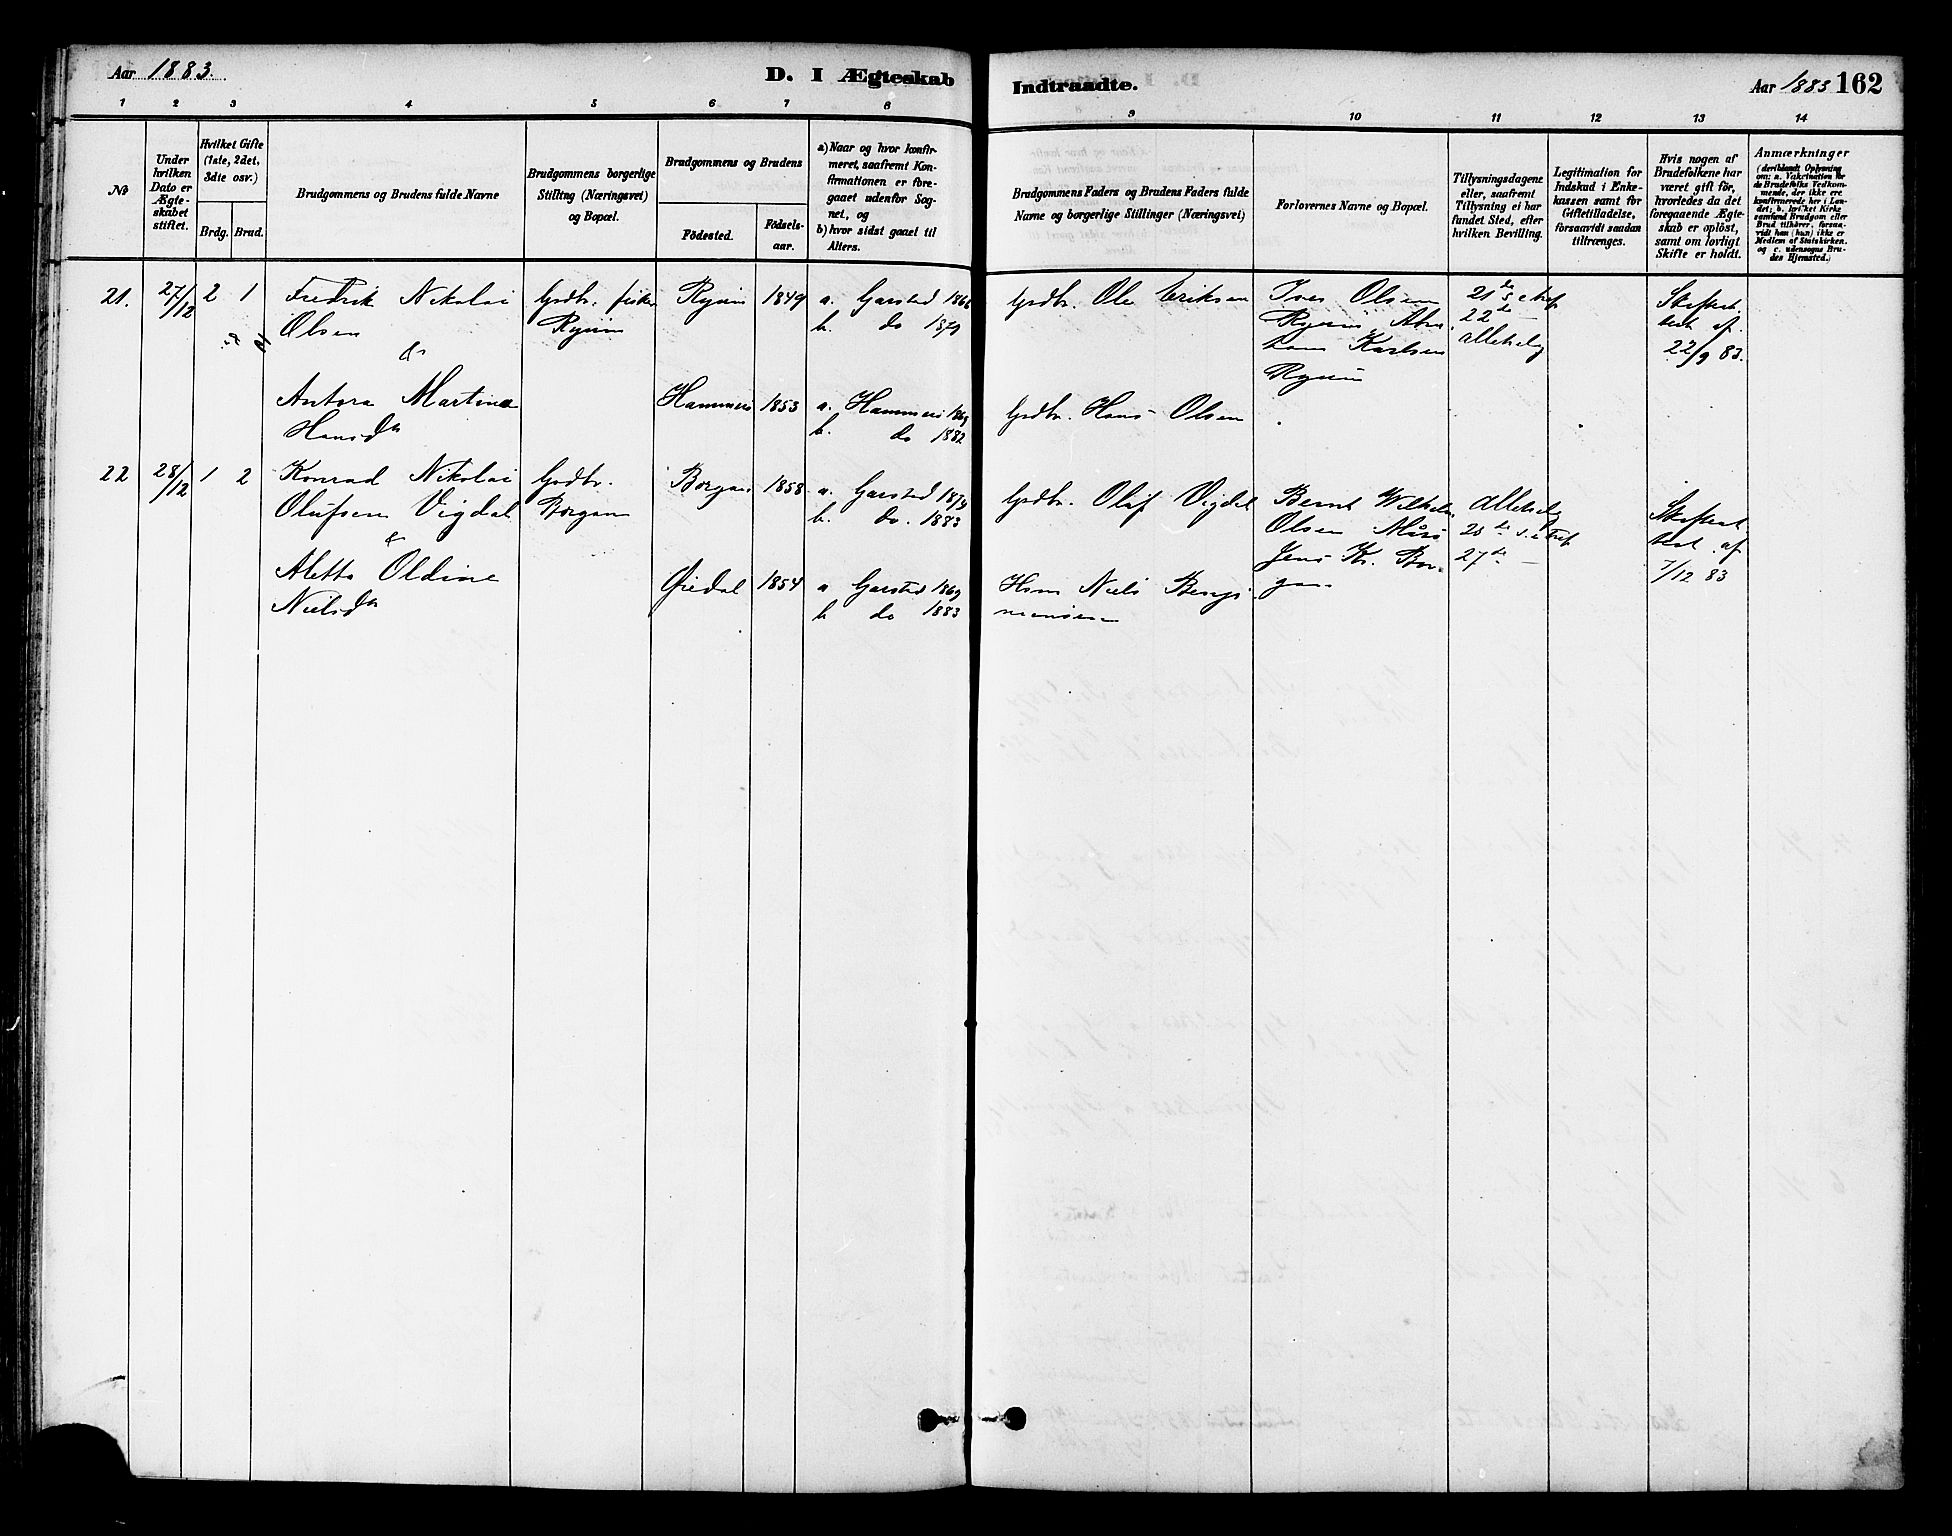 Aar 1883.
D. I Ægteskab
Indtraadte.
Aar 1883 162
1 2 3 4 5 6 7 8 9 10 11 12 13 14
No
Under hvilken Dato er Ægteskabet stiftet.
Hvilket Gifte (1ste, 2det, 3die osv.)
Brdg. Brud.
Brudgommens og Brudens fulde Navne
Brudgommens borgerlige Stilling (Næringsvei) og Bopæl.
Brudgommens og Brudens
Födested.
Födselsaar.
a) Naar og hvor konfirmeret, saafremt Konfirmationen er foregaaet udenfor Sognet, og
b) hvor sidst gaaet til Alters.
Brudgommens Faders og Brudens Faders fulde Navne og borgerlige Stillinger (Næringsvei)
Forlovernes Navne og Bopæl.
Tillysningsdagene eller, saafremt Tillysning ei har fundet Sted, efter hvilken Bevilling.
Legitimation for Indskud i Enkekassen samt for Giftetilladelse, forsaavidt saadan tiltrænges.
Hvis nogen af Brudefolkene har været gift för, hvorledes da det foregaaende Ægteskab er oplöst, samt om lovligt Skifte er holdt.
Anmærkninger
(deriblandt Oplysning om: a. Vakcination for de Brudefolks Vedkommende, der ikke ere konfirmerede her i Landet; b. hvilket Kirkesamfund Brudgom eller Brud tilhörer, forsaavidt han (hun) ikke er Medlem af Statskirken. og c. udensogns Brudes Hjemsted.)
21. 27/12 2 1 Fredrik Nikolai Grdbr. fisker Ryum 1849 a. Garstad 1866 Grdbr. Ole Eriksen Iver Olsen 21de s e tref
Olsen Ryum b. do 1879 22de
& allehelg 22/9 83.
Karlsen
Antora Martina Hammer 1853 a. Hammer 1869 Grdbr. Hans Olsen
Hansdtr b. do 1882
22 28/12 1 2 Konrad Nikolai Grdbr. Borgan 1858 a. Garstad 1874 Grdbr. Oluf Vigdal Bernt Wilhelm Allehelg
Olufsen Vigdal Borgan b. do. 1883 Olsen
& Jens Kr. Bor- 27de af
Aletta Oldine 1854 a Garstad 1869 Niels gan 7/12 83
Nielsdtr b do 1883